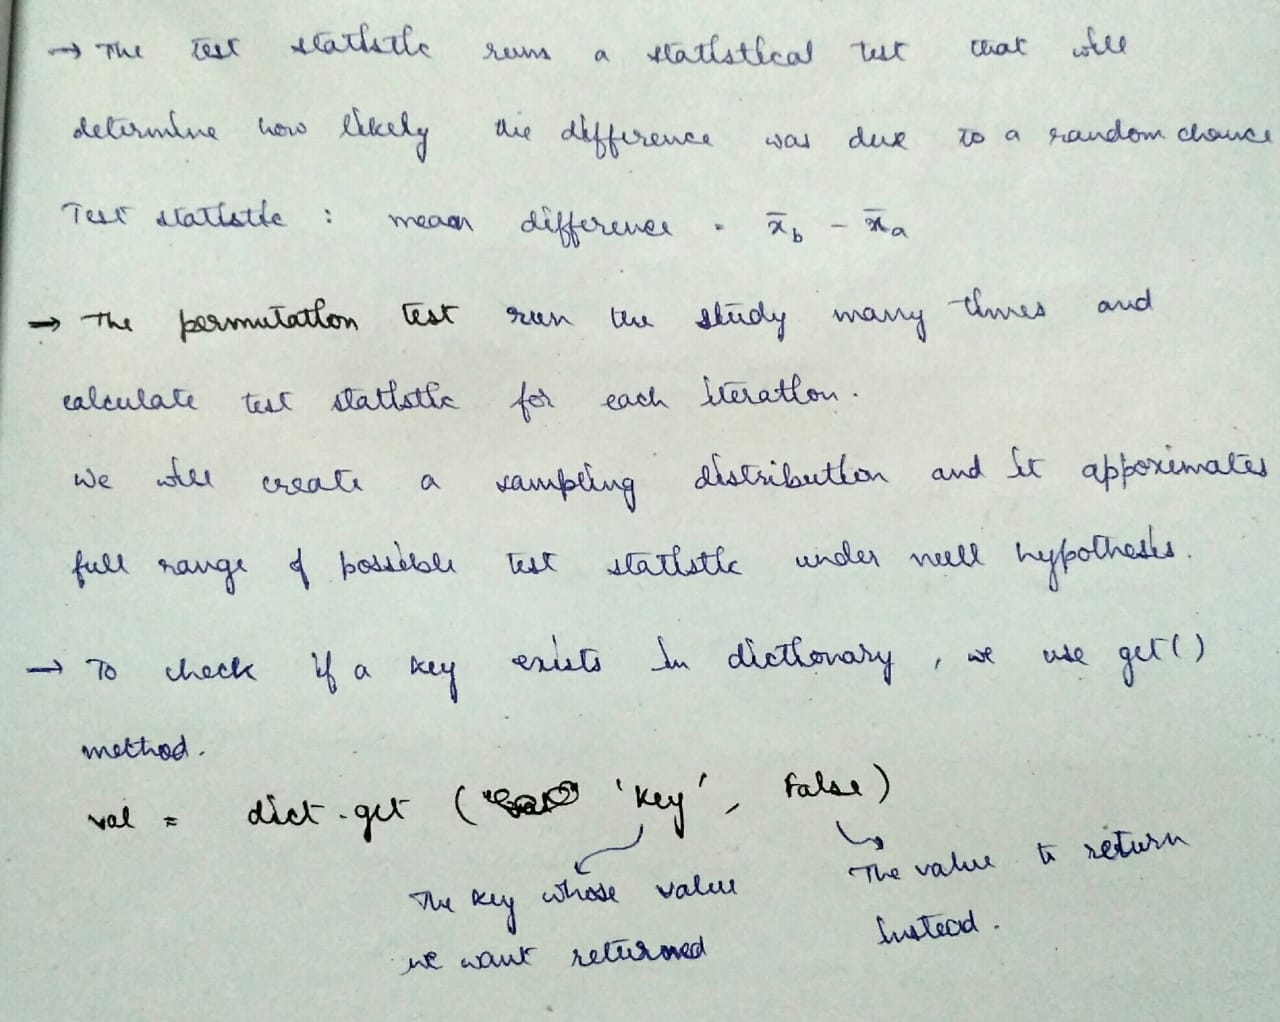 → The test statistic runs a statistical test that will
determine how likely the difference was due to a random chance
Test statistic : mean difference = x̄b - x̄a
→ The permutation test run the study many times and
calculate test statistic for each iteration.
We will create a sampling distribution and it apporimates
full range of possible test statistic under null hypothesis.
→ To check if a key exists in dictionary, we use get()
method.
val = dict.get ( 'key', False)
The key whose value
we want returned
The value to return
instead.